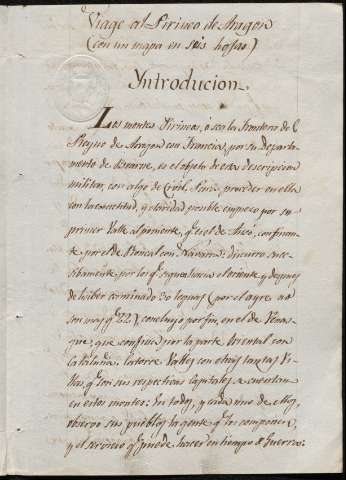 Viage al Pirineo de Aragon
(con un mapa en seis hojas)
Yntroducion.
Los montes Pirineos, ó sea la frontera del
Reyno de Aragon con Francia, por su Departa-
mento de Bearne, es el objeto de esta descripcion
militar, con algo de Civil. Para proceder en ella
con la exactitud, y claridad posible empiezo por su
primer Valle al poniente, qe. es el de Ansó, confinan-
te por el de Roncal con Navarra: discurro suce-
sibamente por los qe. siguen hacia el oriente y despues
de haber caminado 30 leguas (por el ayre no
son mas qe. 22), concluyo por fin, en el de Venas-
que; que confina por la parte oriental con
Cataluña. Catorce Valles con otras tantas Vi-
llas, qe. son sus respectivas capitales se cuentan
en estos montes: En todos, y cada uno de ellos,
observo sus pueblos la gente qe. los componen,
y el servicio qe. puede hacer en tiempo de Guerra: